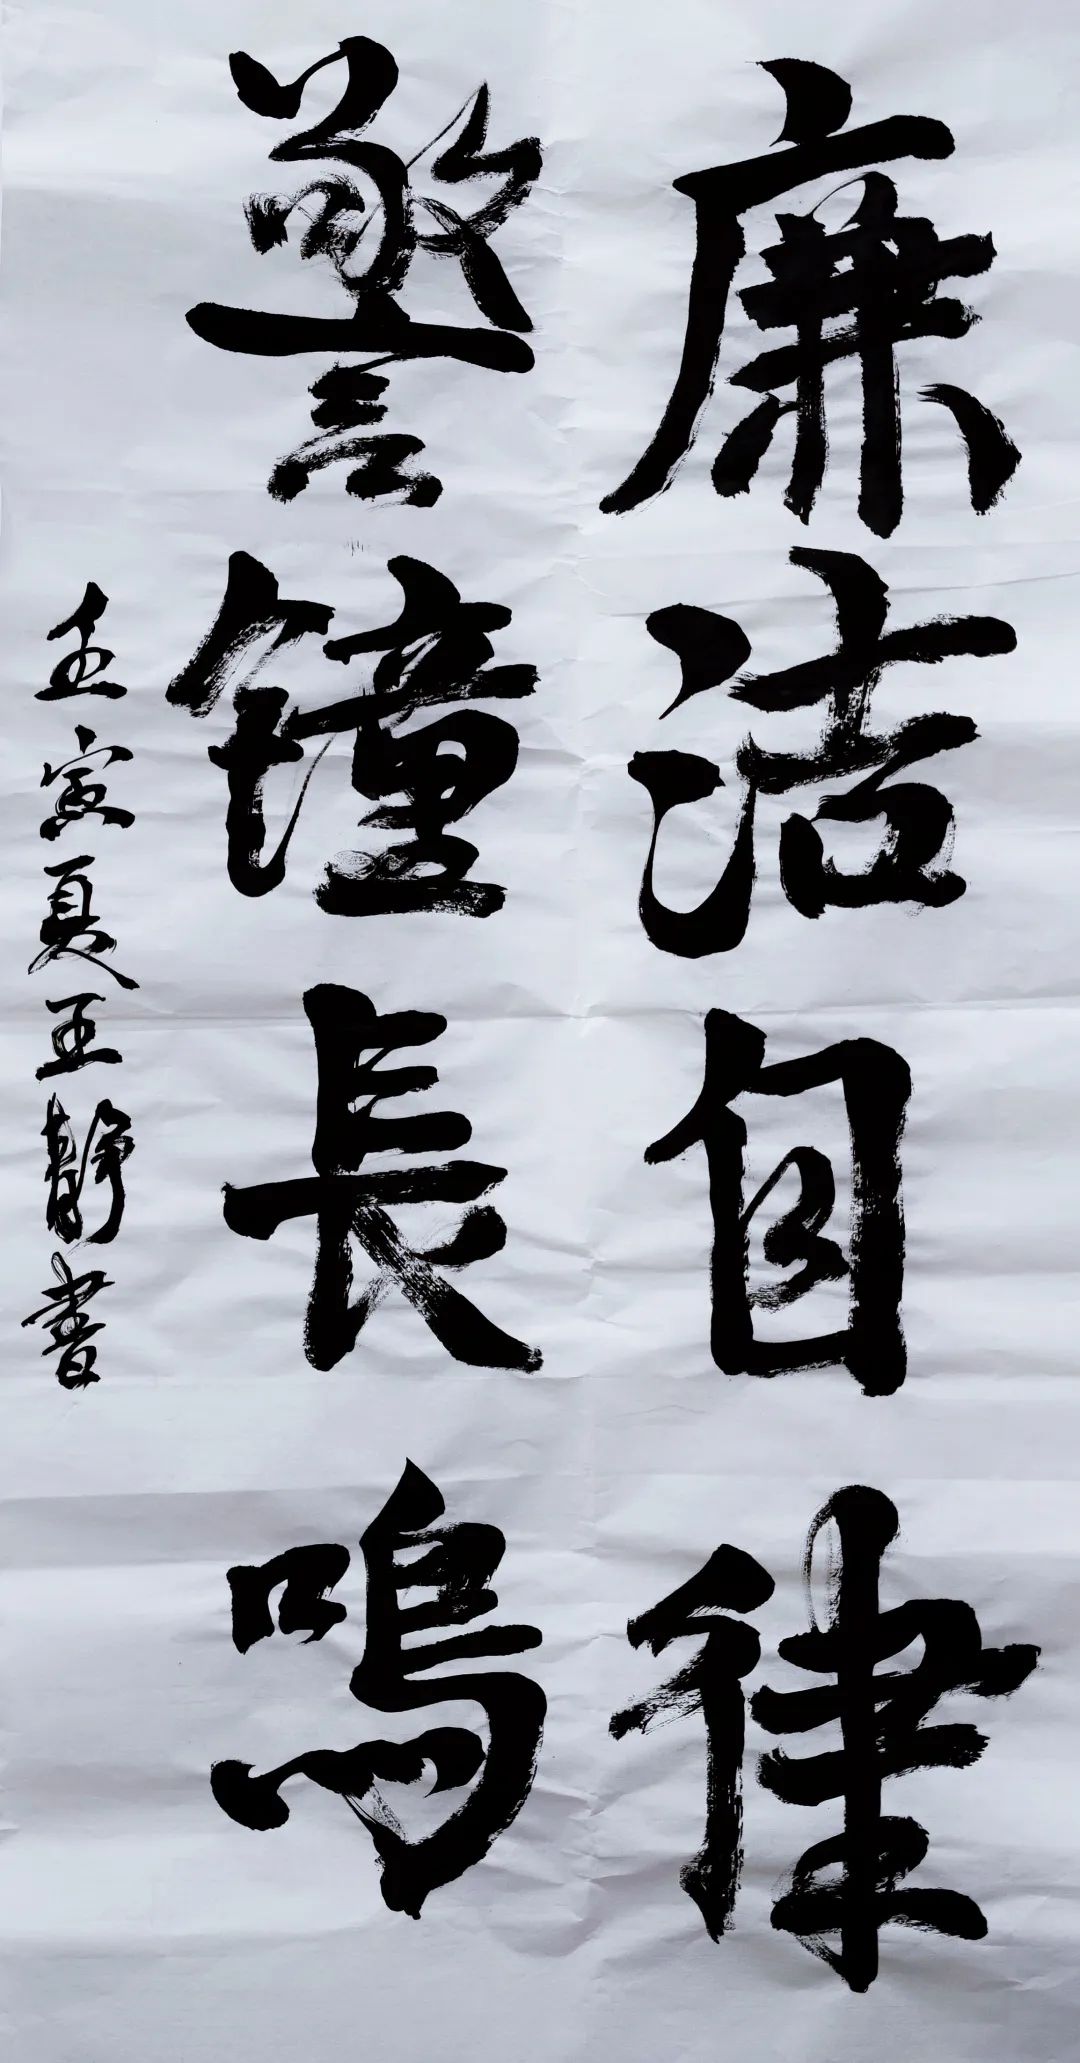 廉洁自律
警鐘長鳴
壬寅夏王靜書